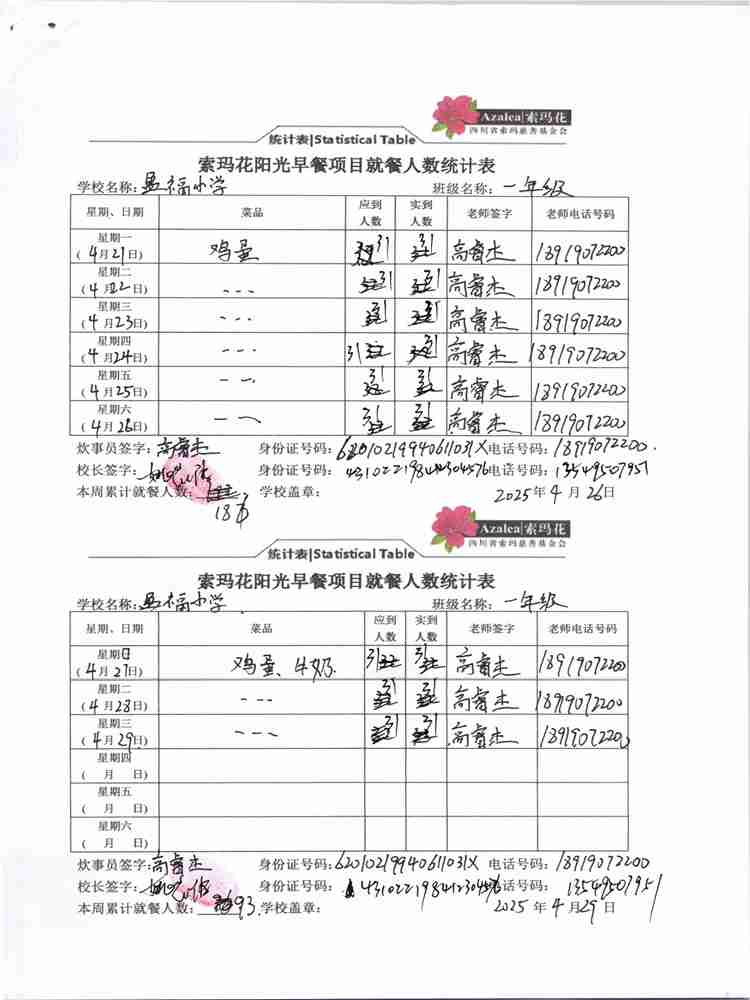 Azalea|索玛花
四川省索玛慈善基金会
统计表|Statistical Table
索玛花阳光早餐项目就餐人数统计表
学校名称:福小学 班级名称:一年级
星期、日期 菜品 应到人数 实到人数 老师签字 老师电话号码
星期一 (4月21日) 鸡蛋 31 31 高睿杰 18919072200
星期二 (4月22日) --- 31 31 高睿杰 18919072200
星期三 (4月23日) --- 31 31 高睿杰 18919072200
星期四 (4月24日) --- 31 31 高睿杰 18919072200
星期五 (4月25日) --- 31 31 高睿杰 18919072200
星期六 (4月26日) --- 31 31 高睿杰 18919072200
炊事员签字:高睿杰 身份证号码: 电话号码:18919072200.
校长签字: 身份证号码: 电话号码:13549507951
本周累计就餐人数:186 学校盖章: 2025年4月26日
Azalea|索玛花
四川省索玛慈善基金会
统计表|Statistical Table
索玛花阳光早餐项目就餐人数统计表
学校名称:福小学 班级名称:一年级
星期、日期 菜品 应到人数 实到人数 老师签字 老师电话号码
星期日 (4月27日) 鸡蛋、牛奶. 31 31 高睿杰 18919072200
星期二 (4月28日) --- 31 31 高睿杰 18919072200
星期三 (4月29日) --- 31 31 高睿杰 18919072200
星期四 ( 月 日)
星期五 ( 月 日)
星期六 ( 月 日)
炊事员签字:高睿杰 身份证号码:62010219940611031X 电话号码:18919072200
校长签字: 身份证号码: 电话号码:13549507951
本周累计就餐人数:93. 学校盖章: 2025年4月29日